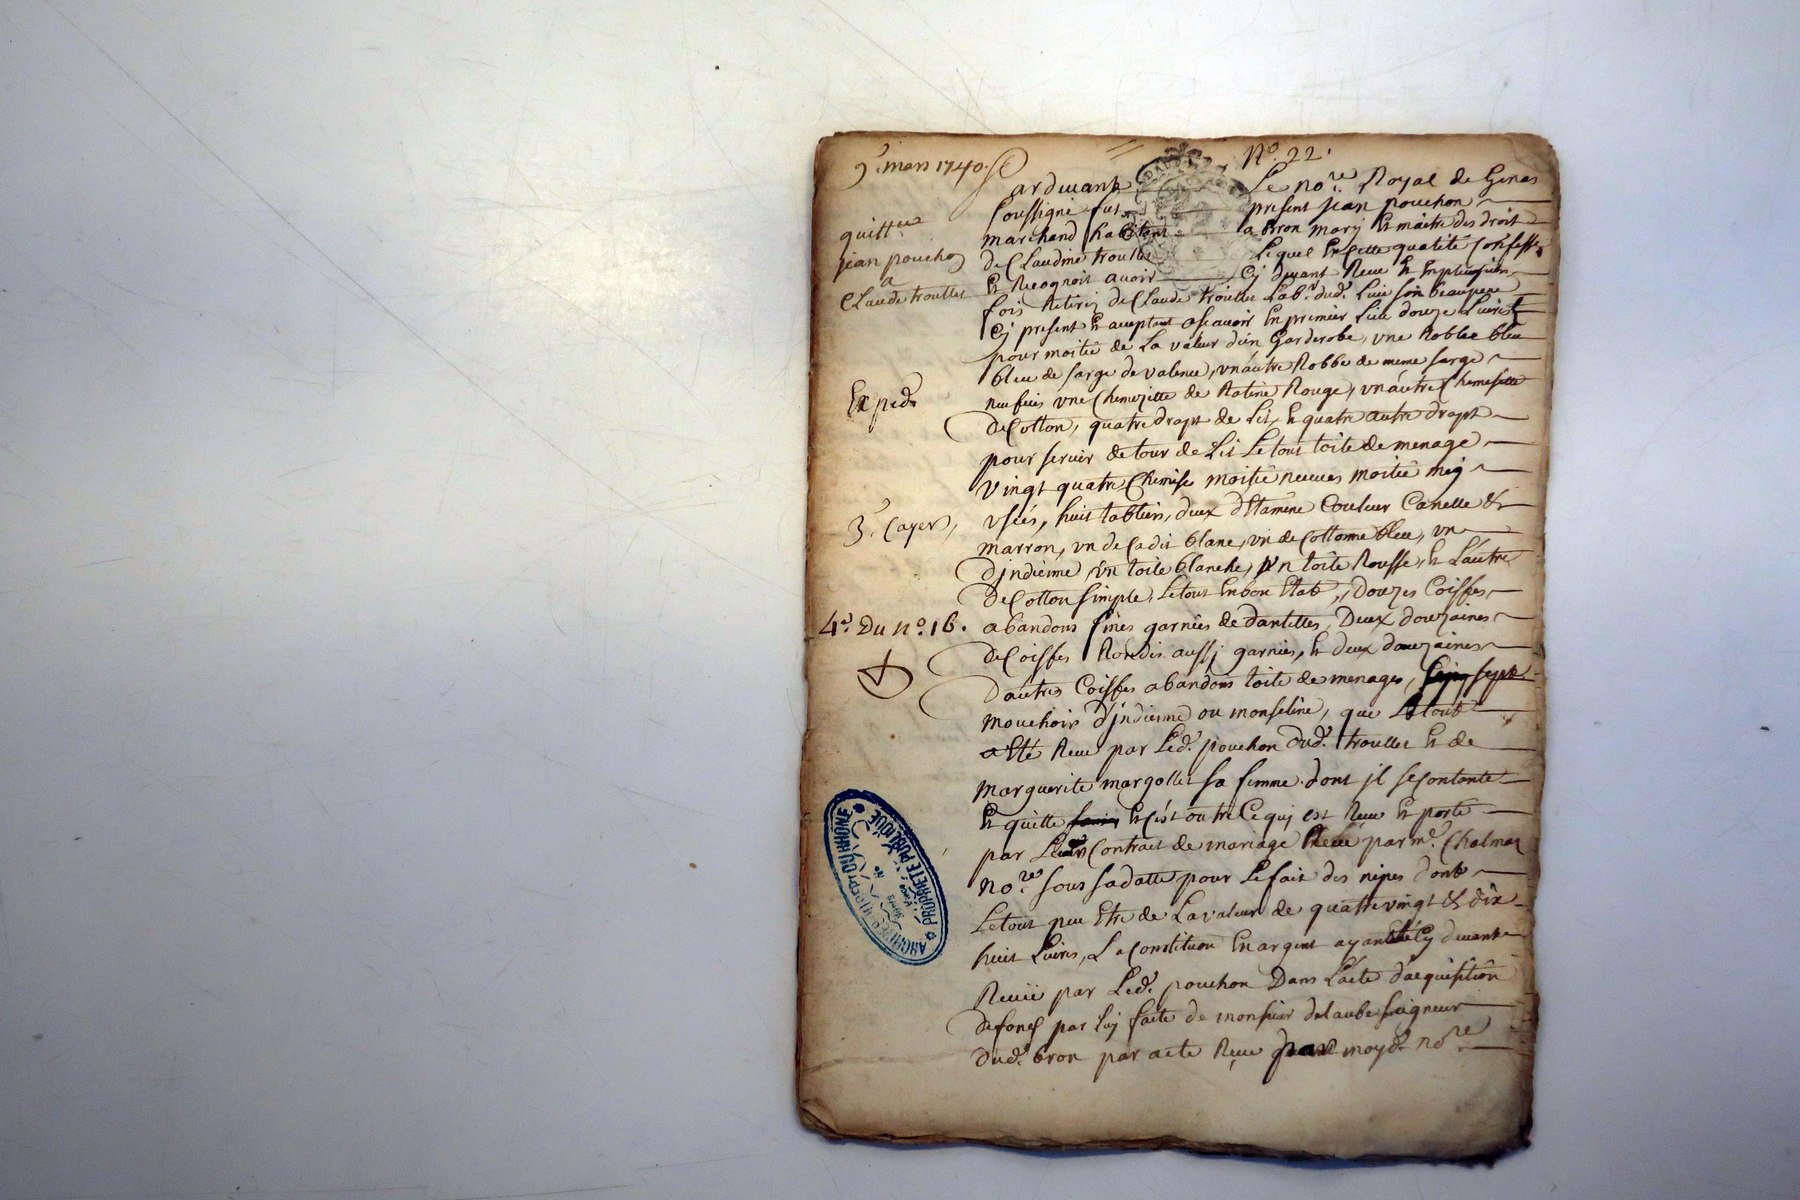 9e. mars 1740.
No. 22.
quitt.ce
jean pouchon
a
Claude troullet
Exped.
3e. Cayer,
4e. Du no. 16.
Pardevant Le nore. Royal de Genas
soussigné fut present jean pouchon
marchand habitant a Bron mary Et maitre des droit
de Claudine troullet Lequel En cette qualité Confesse
Et Recognoit avoir Cy devant Receu Et En plusieurs
fois Retirés de Claude troullet Labr. dud. Lieu son beaupere
Cy present Et acceptant ascavoir En premier Lieu douze Livres
pour moitié de La valeur d'un Garderobe, une Robbe bleu
bleu de sarge de valence, un autre Robbe de meme sarge
neufves une Chemizette de Ratine Rouge, un autre Chemisette
de Cotton, quatre drapt de Lit, Et quatre autre drapt
pour servir de tour de Lit Le tout toile de menage
Vingt quatre Chemises moitié neuves moitié my
usées, huit tabliers, deux d'Etamine Couleur Canelle &
marron, un de Cadit blanc, un de Cottonne bleu, un
d'jndienne un toile blanche, un toile Rousse, Et L'autre
de Cotton simple, Le tout En bon Etat, Douzes Coiffes
abandons fines garnies de dantelles, Deux douzaines
de Coiffes Rondes aussj garnies, Et deux douzaines
d'autres Coiffes abandons toile de menages, sept
mouchoirs d'jndienne ou mouseline, que Le tout
a Eté Receu par Led. pouchon dud. troullet Et de
marguerite margollet sa femme dont jl se Contente
Et quitte Et C'est outre Ce quj est Receu Et porté
par Leur Contrat de mariage Receu par me. Chalmas
nore. sous sa datte pour Le fait des nipes dont
Le tout peu Etre de La valeur de quatre vingt & dix
huit Livres, La Constitution En argent ayant Eté Cy devant
Receue par Led. pouchon Dans L'acte d'acquisition
de fonds par Luj faite de monsieur de Laube seigneur
dud. bron par acte Receu par moyd. nore.
ARCHIVES DU DEPt DU RHONE
PROPRIETE PUBLIQUE